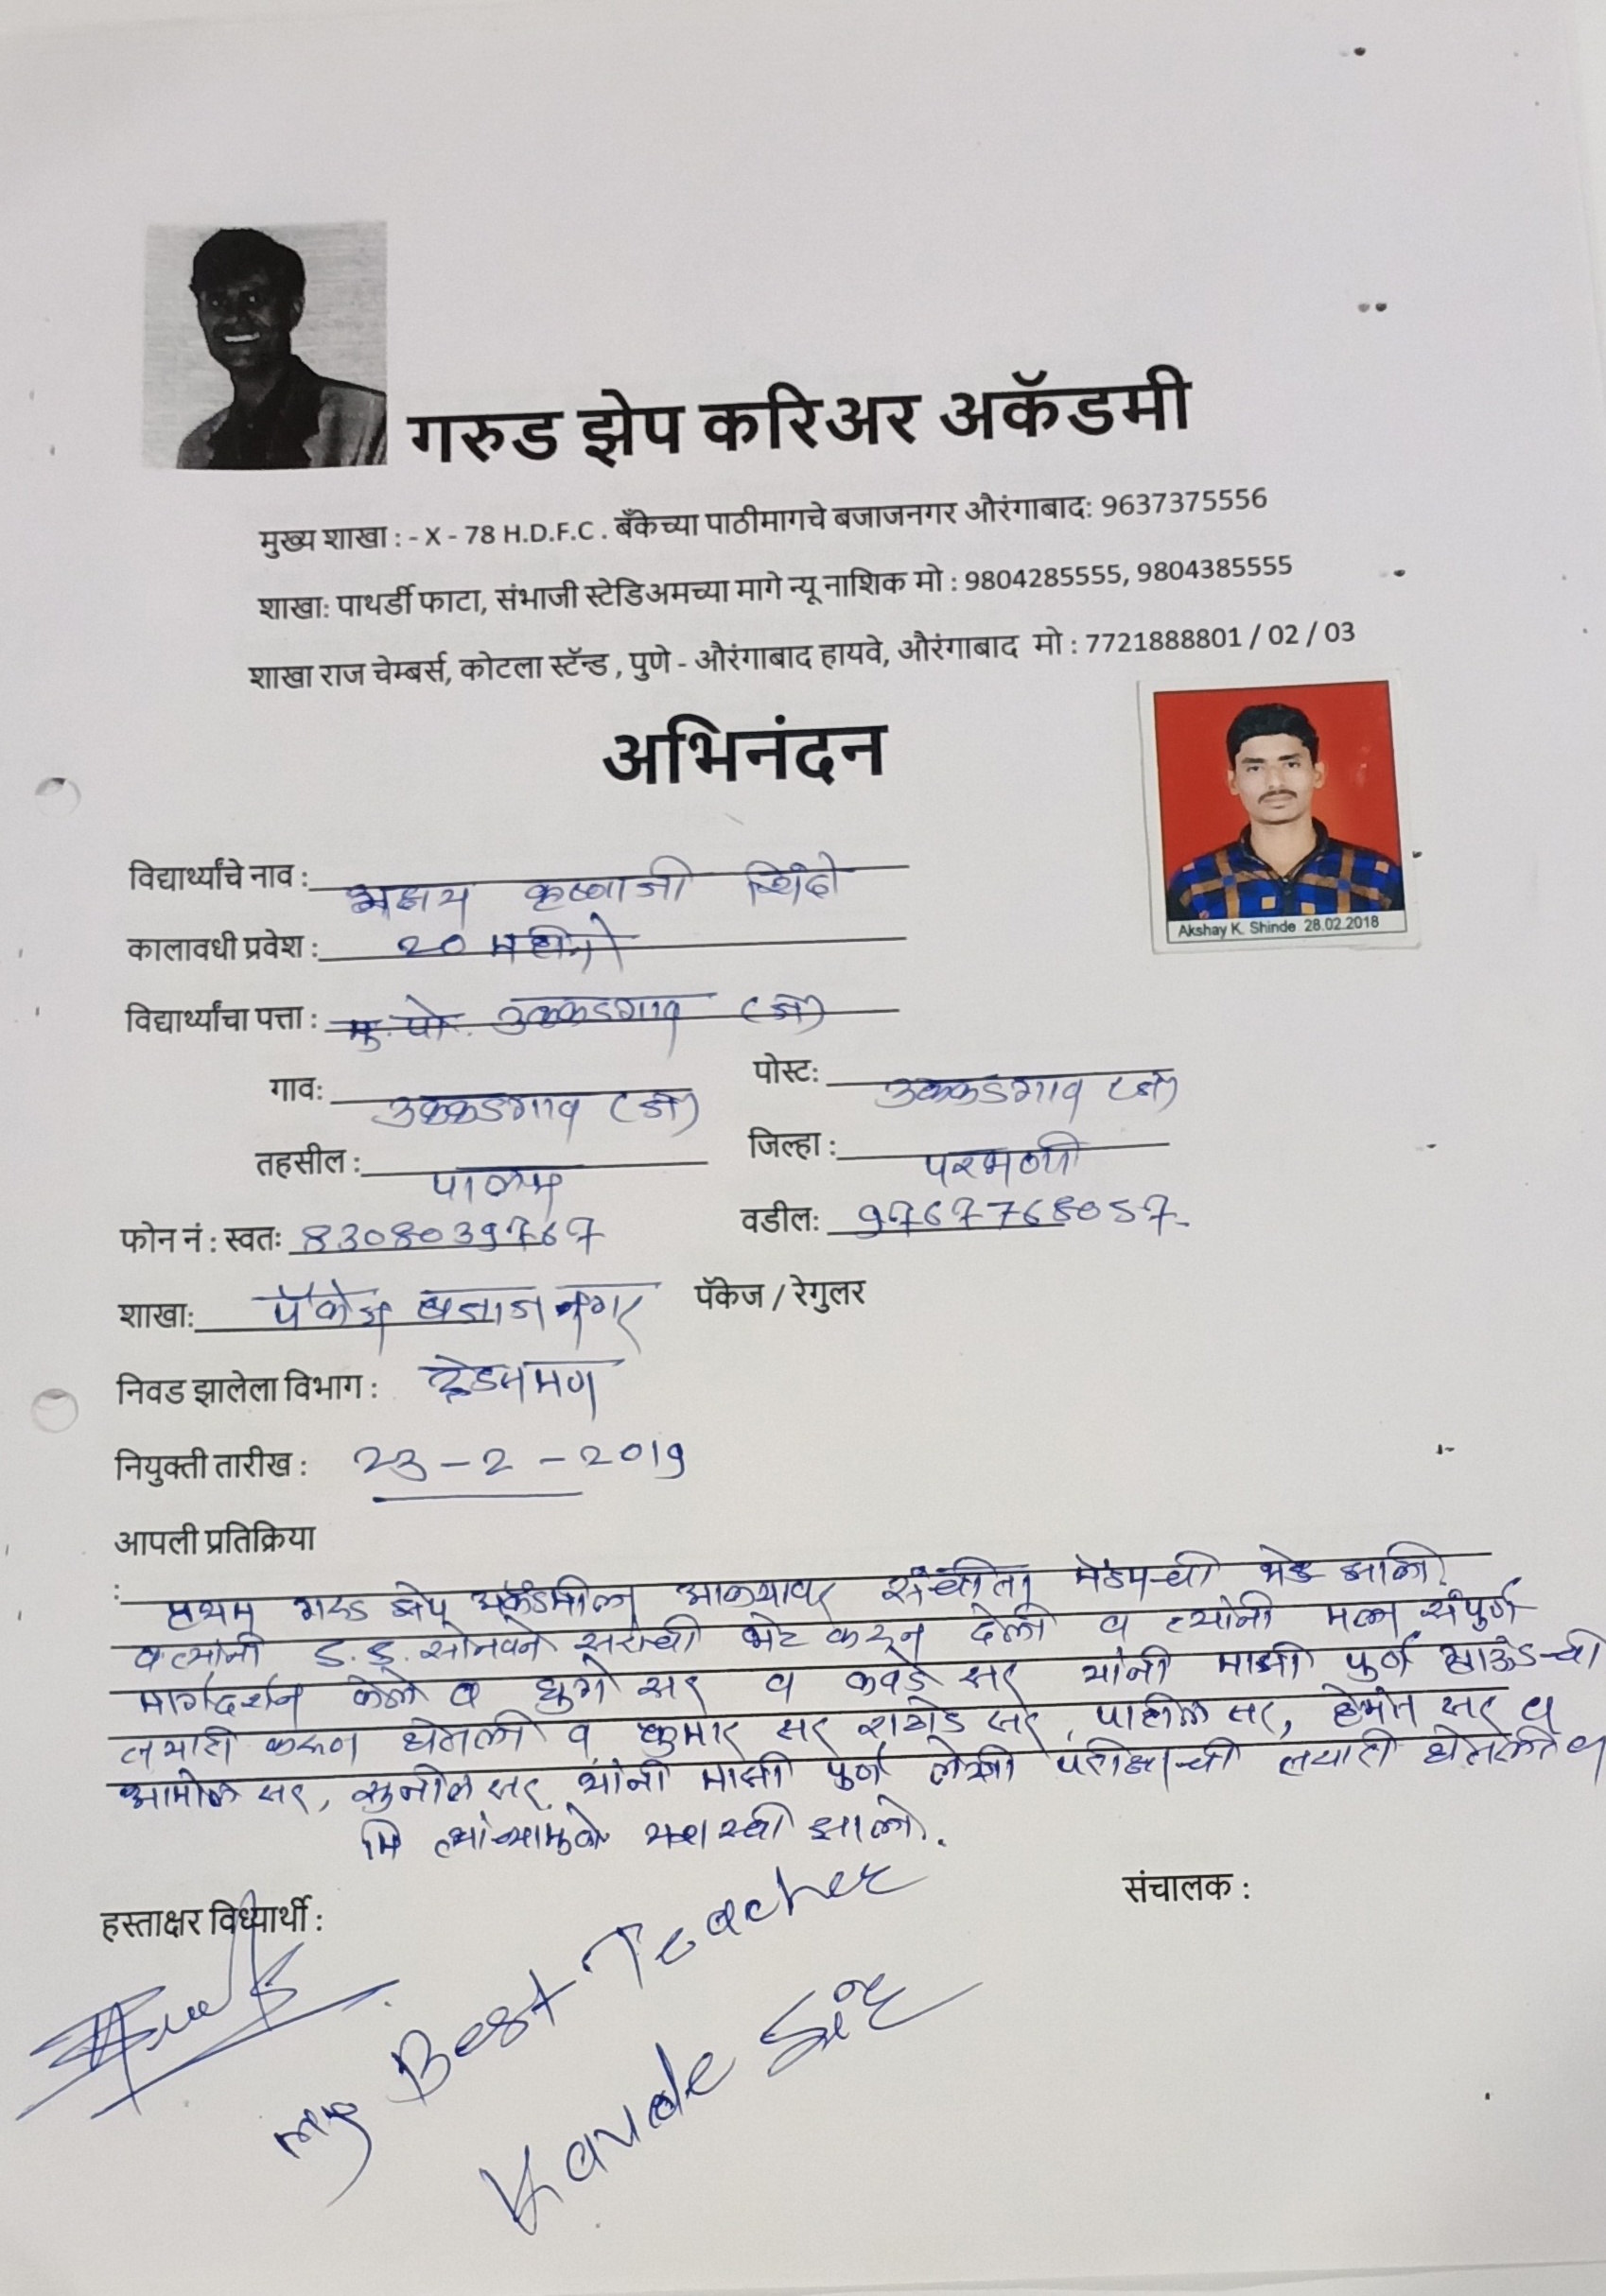 गरुड झेप करिअर अकॅडमी
मुख्य शाखा : - X - 78 H.D.F.C . बँकेच्या पाठीमागचे बजाजनगर औरंगाबाद: 9637375556
शाखा: पाथर्डी फाटा, संभाजी स्टेडिअमच्या मागे न्यू नाशिक मो : 9804285555, 9804385555
शाखा राज चेम्बर्स, कोटला स्टॅन्ड , पुणे - औरंगाबाद हायवे, औरंगाबाद मो : 7721888801 / 02 / 03
अभिनंदन
Akshay K. Shinde 28.02.2018
विद्यार्थ्यांचे नाव : अक्षय कृष्णाजी शिंदे
कालावधी प्रवेश : 20 महीने
विद्यार्थ्यांचा पत्ता : मु. पो. उक्कडगाव
गाव: उक्कडगाव पोस्ट: उक्कडगाव
तहसील : पालम जिल्हा : परभणी
फोन नं : स्वतः 8308039767 वडील: 9767768057
शाखा: पॅकेज बजाज नगर पॅकेज / रेगुलर
निवड झालेला विभाग : ट्रेडसमण
नियुक्ती तारीख : 23 - 2 - 2019
आपली प्रतिक्रिया
: प्रथम गरुड झेप आल्यावर मॅडमची भेट झाली.
व त्यांनी सोनवने सरांची भेट करून देली व त्यांनी मला संपुर्ण
मार्गदर्शन केले व घुगे सर व कवडे सर यांनी माझी पुर्ण ग्राऊंडची
तयारी करून घेतली व कुमार सर सर, पाटील सर, हेमंत सर व
आमोल सर, सुनील सर यांनी माझी पुर्ण लेखी परीक्षाची तयारी घेतली व
मि त्यांच्यामुळे यशस्वी झालो.
हस्ताक्षर विध्यार्थी : संचालक :
my Best Teacher
Kavde Sir